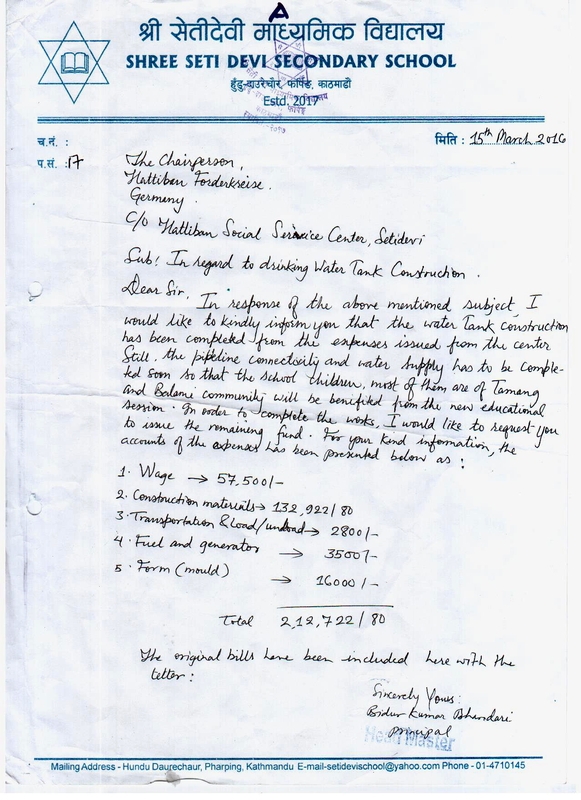 A
श्री सेतीदेवी माध्यमिक विद्यालय
SHREE SETI DEVI SECONDARY SCHOOL
हुंडु-दाउरेचौर, फर्पिङ, काठमाडौं
Estd. 2017
च.नं. :
मिति : 15th March 2016
प.सं. : 17
The Chairperson,
Hattiban Forderkreise.
Germany.
C/O Hattiban Social Service Center, Setidevi
Sub: In regard to drinking Water Tank Construction.
Dear Sir,
In response of the above mentioned subject, I
would like to kindly inform you that the water Tank construction
has been completed from the expenses issued from the center
Still, the pipeline connectivity and water supply has to be comple-
ted soon so that the school children, most of them are of Tamang
and Balami community will be benifited from the new educational
session. In order to complete the works, I would like to request you
to issue the remaining fund. For your kind information, the
accounts of the expenses has been presented below as:
1. Wage → 57,500/-
2. Construction materials → 132,922/80
3. Transportation & load/unload → 2800/-
4. Fuel and generator → 3500/-
5. Form (mould) → 16000/-
Total 2,12,722/80
The original bills have been included here with the
letter:
Sincerely Yours:
Bidur Kumar Bhandari
principal
Head Master
Mailing Address - Hundu Daurechaur, Pharping, Kathmandu E-mail-setidevischool@yahoo.com Phone - 01-4710145